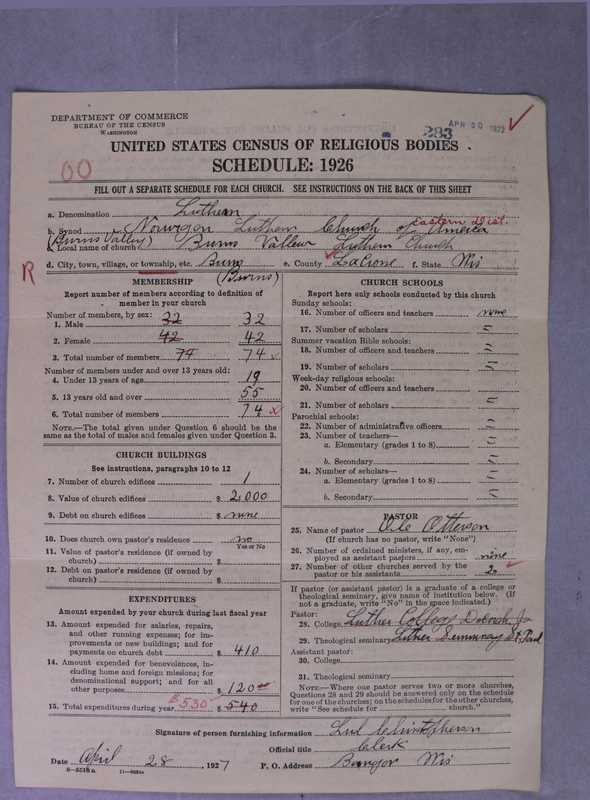 DEPARTMENT OF COMMERCE
BUREAU OF THE CENSUS
WASHINGTON
283
APR 30 1927
UNITED STATES CENSUS OF RELIGIOUS BODIES
00
SCHEDULE: 1926
FILL OUT A SEPARATE SCHEDULE FOR EACH CHURCH. SEE INSTRUCTIONS ON THE BACK OF THIS SHEET
a. Denomination Luthern
Eastern Dist.
b. Synod Norwegon Luthern Church of America
(Burns Valley)
c. Local name of church Burns Valleur Luthern Church
d. City, town, village, or township, etc. Burns e. County LaCrosse f. State Wis
(Burns)
R
MEMBERSHIP
Report number of members according to definition of member in your church
Number of members, by sex:
1. Male 32 32
2. Female 42 42
3. Total number of members 74 74
Number of members under and over 13 years old:
4. Under 13 years of age 19
5. 13 years old and over 55
6. Total number of members 74
NOTE.—The total given under Question 6 should be the same as the total of males and females given under Question 3.
CHURCH BUILDINGS
See instructions, paragraphs 10 to 12
7. Number of church edifices 1
8. Value of church edifices $ 2,000
9. Debt on church edifices $ none
10. Does church own pastor's residence? no
Yes or No
11. Value of pastor's residence (if owned by church) $
12. Debt on pastor's residence (if owned by church) $
EXPENDITURES
Amount expended by your church during last fiscal year
13. Amount expended for salaries, repairs, and other running expenses; for improvements or new buildings; and for payments on church debt $ 410
14. Amount expended for benevolences, including home and foreign missions; for denominational support; and for all other purposes $ 120
15. Total expenditures during year $530 $ 540
CHURCH SCHOOLS
Report here only schools conducted by this church
Sunday schools:
16. Number of officers and teachers none
17. Number of scholars
Summer vacation Bible schools:
18. Number of officers and teachers
19. Number of scholars
Week-day religious schools:
20. Number of officers and teachers
21. Number of scholars
Parochial schools:
22. Number of administrative officers
23. Number of teachers—
a. Elementary (grades 1 to 8)
b. Secondary
24. Number of scholars—
a. Elementary (grades 1 to 8)
b. Secondary
PASTOR
25. Name of pastor Ole Otterson
(If church has no pastor, write "None")
26. Number of ordained ministers, if any, employed as assistant pastors none
27. Number of other churches served by the pastor or his assistants 2
If pastor (or assistant pastor) is a graduate of a college or theological seminary, give name of institution below. (If not a graduate, write "No" in the space indicated.)
Pastor:
28. College Luther College Decorah Ia
29. Theological seminary Luther Seminary St Paul
Assistant pastor:
30. College
31. Theological seminary
NOTE.—Where one pastor serves two or more churches, Questions 28 and 29 should be answered only on the schedule for one of the churches; on the schedules for the other churches, write "See schedule for church."
Signature of person furnishing information Christopherson
Official title Clerk
Date April 28, 1927 P. O. Address Bangor Wis
8—5518a